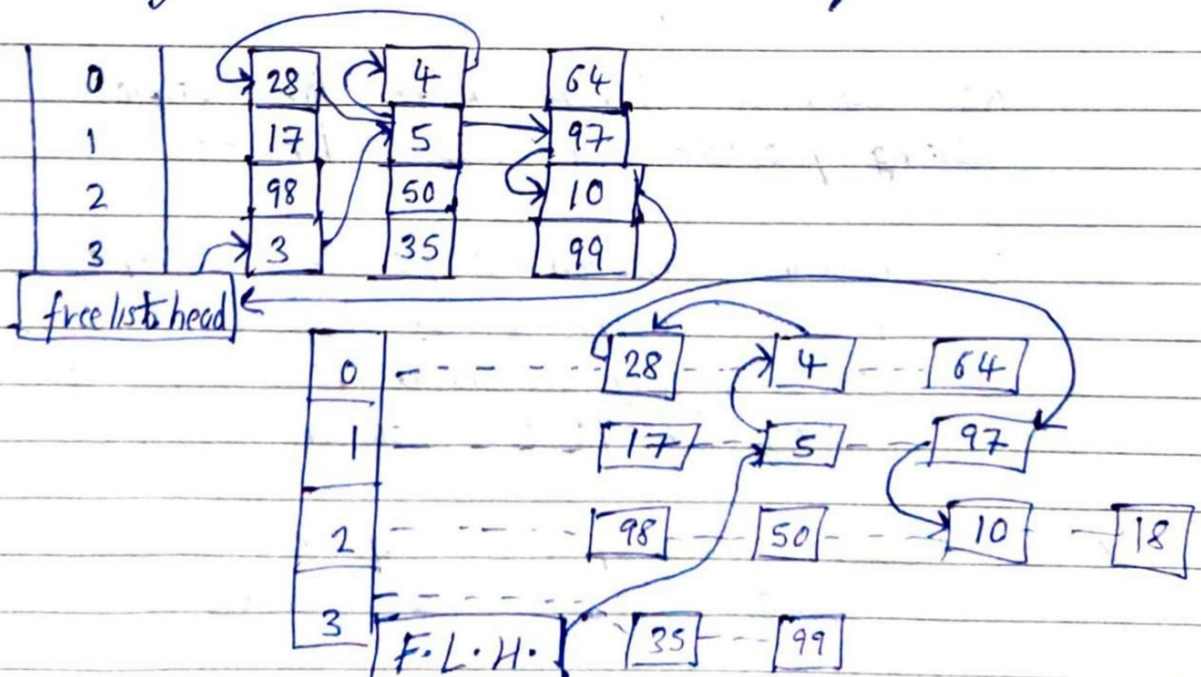 0 28 4 64
1 17 5 97
2 98 50 10
3 3 35 99
free lists head
0 28 4 64
1 17 5 97
2 98 50 10 18
3 35 99
F.L.H.